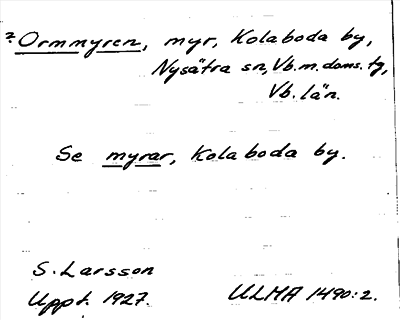 ? Ormmyren, myr, Kolaboda by,
Nysätra sn, Vb. m. doms. tg,
Vb. län.
Se myrar, Kolaboda by.
S. Larsson
Uppt. 1927.
ULMA 1490:2.